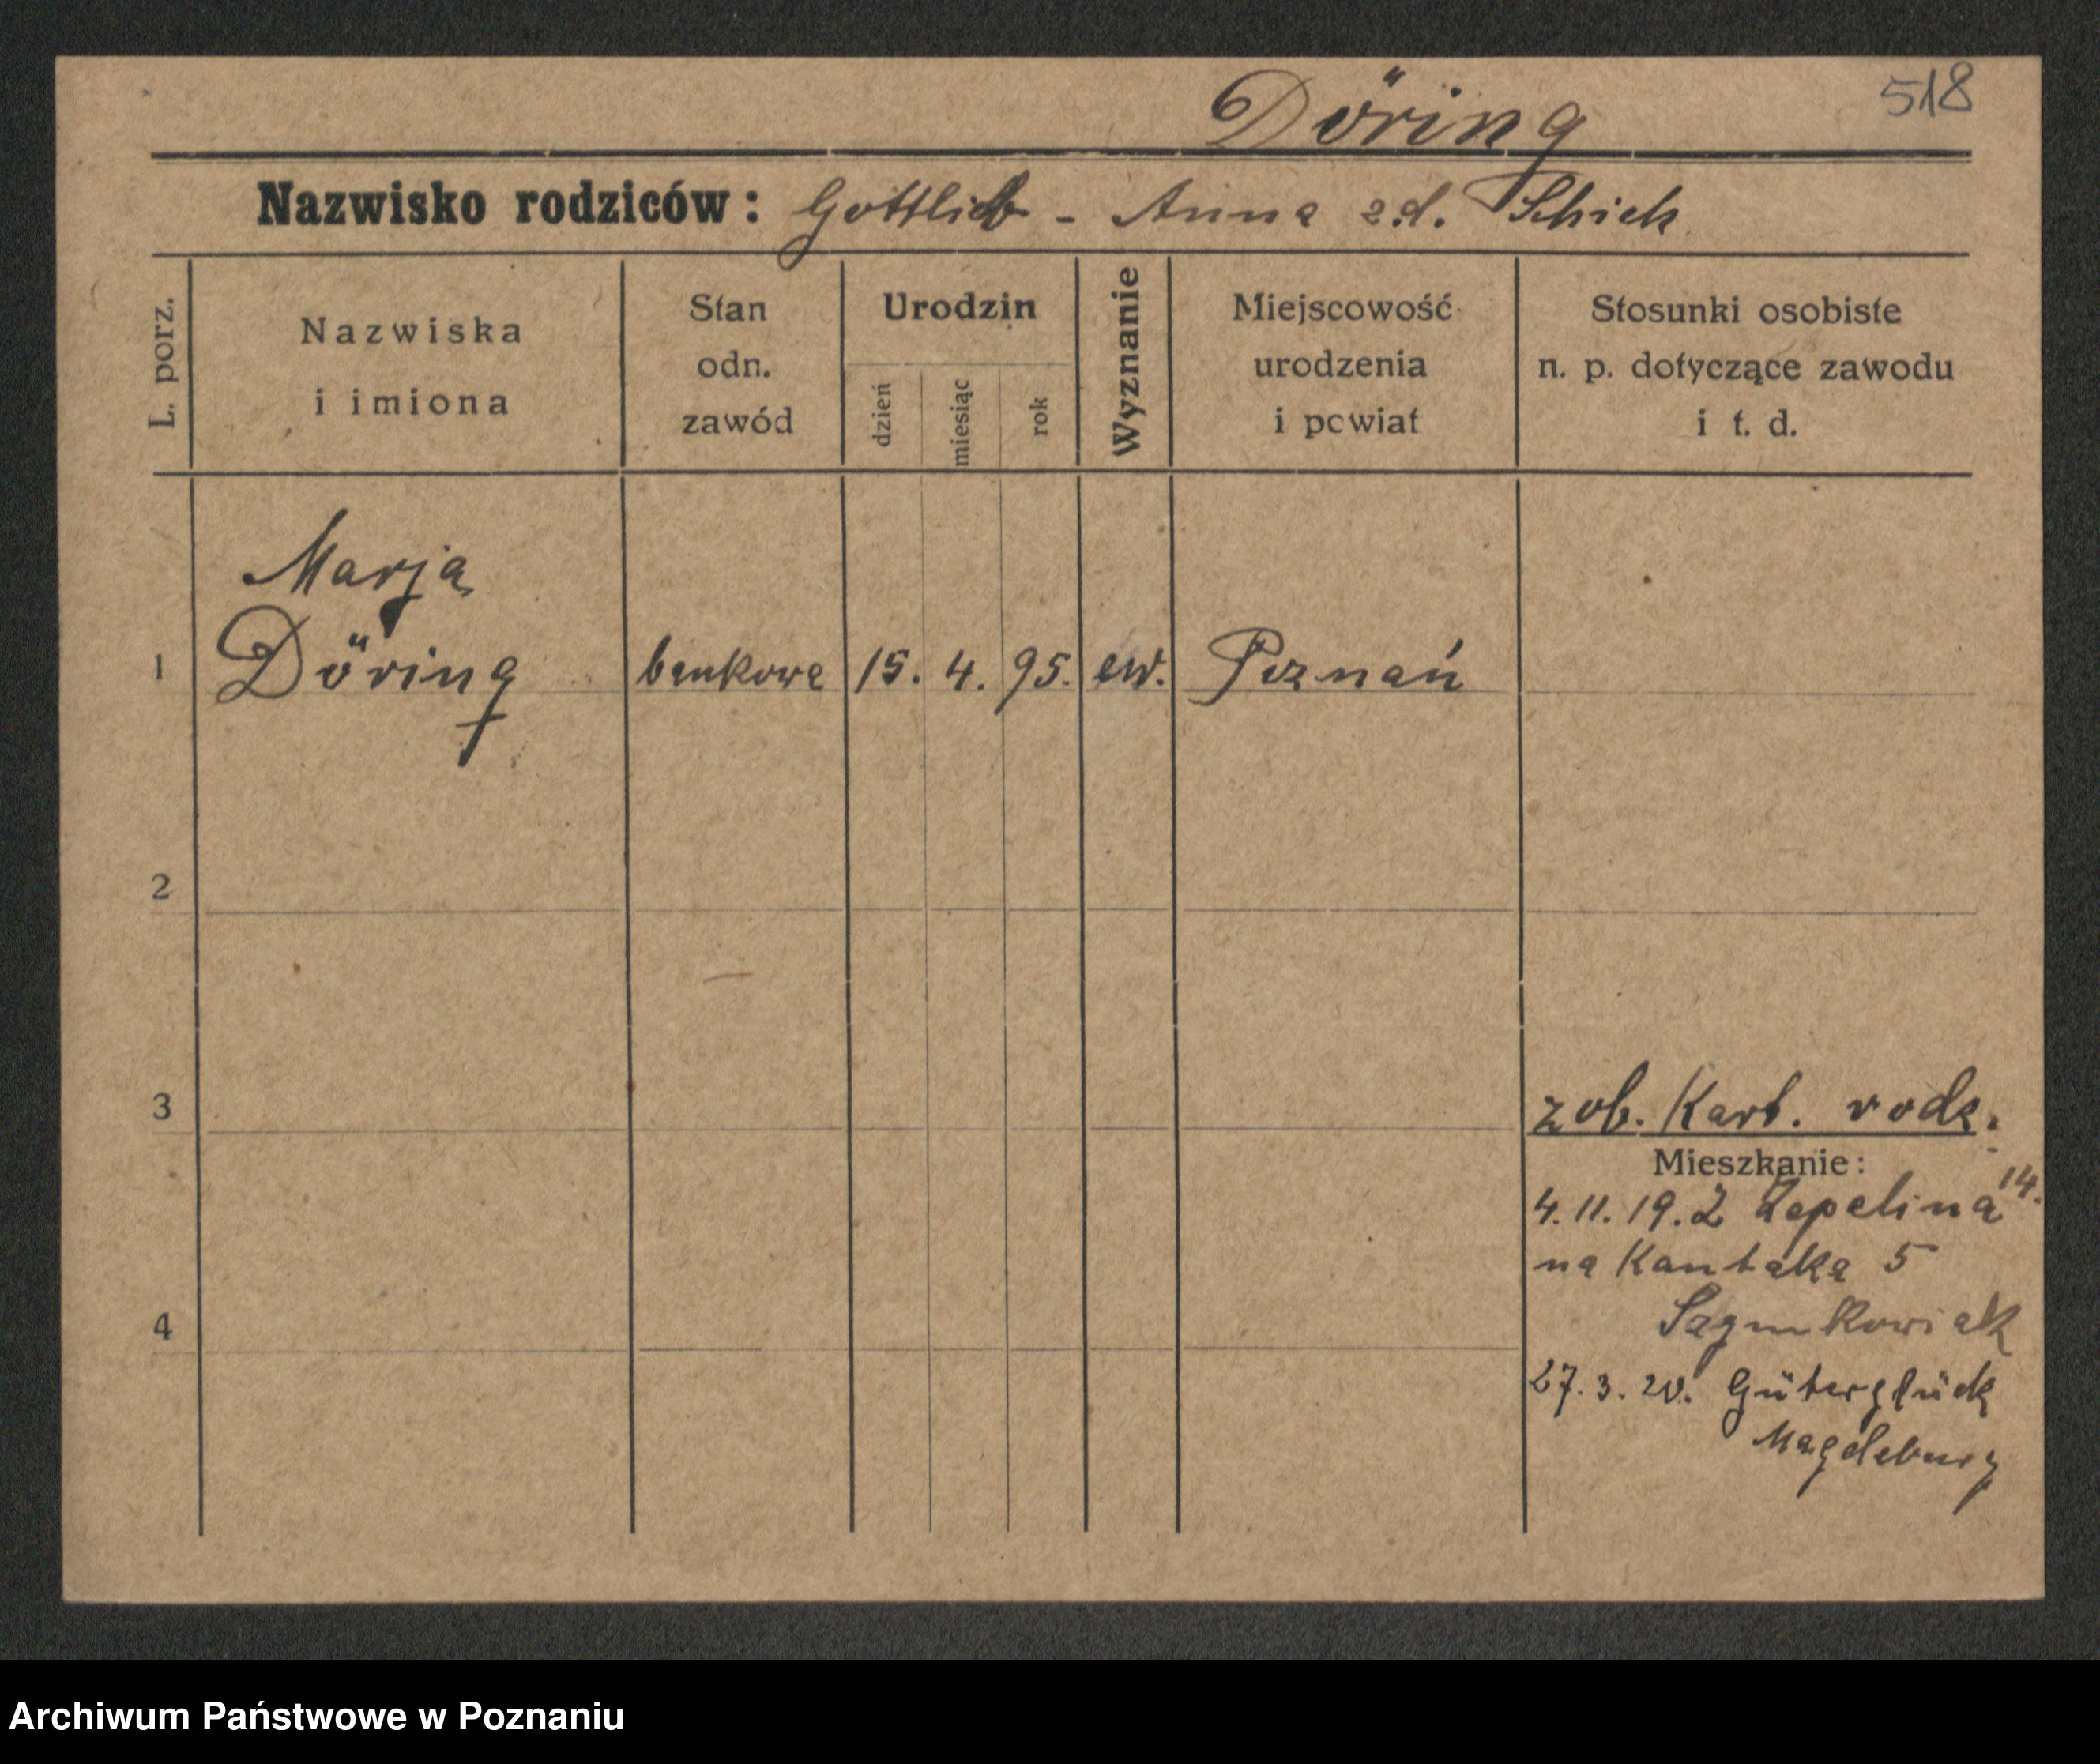 518
Döring
Nazwisko rodziców: Gottlieb - Anna z.d. Schich
L. porz.
Nazwiska
i imiona
Stan
odn.
zawód
Urodzin
dzień
miesiąc
rok
Wyznanie
Miejscowość
urodzenia
i powiat
Stosunki osobiste
n. p. dotyczące zawodu
i t. d.
Marja
1 Döring bankowa 15. 4. 95. ew. Poznań
2
3
zob. Kart. rodz.
Mieszkanie:
4.11.19. Z Zepelina 14.
na Kantaka 5
4
Szymkowiak
27.3.20. Güterglück
Magdeburg
Archiwum Państwowe w Poznaniu